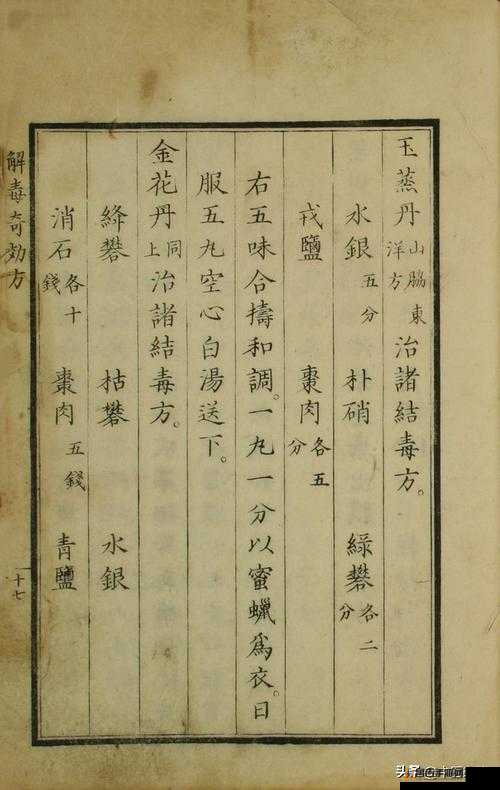 玉蒸丹 山脇東洋方 治諸結毒方。
水銀 五分 朴硝 緑礬 各二分
戎鹽 棗肉 各五分
右五味合擣和調。一丸一分以蜜蠟爲衣。日
服五丸空心白湯送下。
金花丹 同上 治諸結毒方。
絳礬 枯礬 水銀
消石 各十錢 棗肉 五錢 青鹽
解毒奇効方
十七
头条